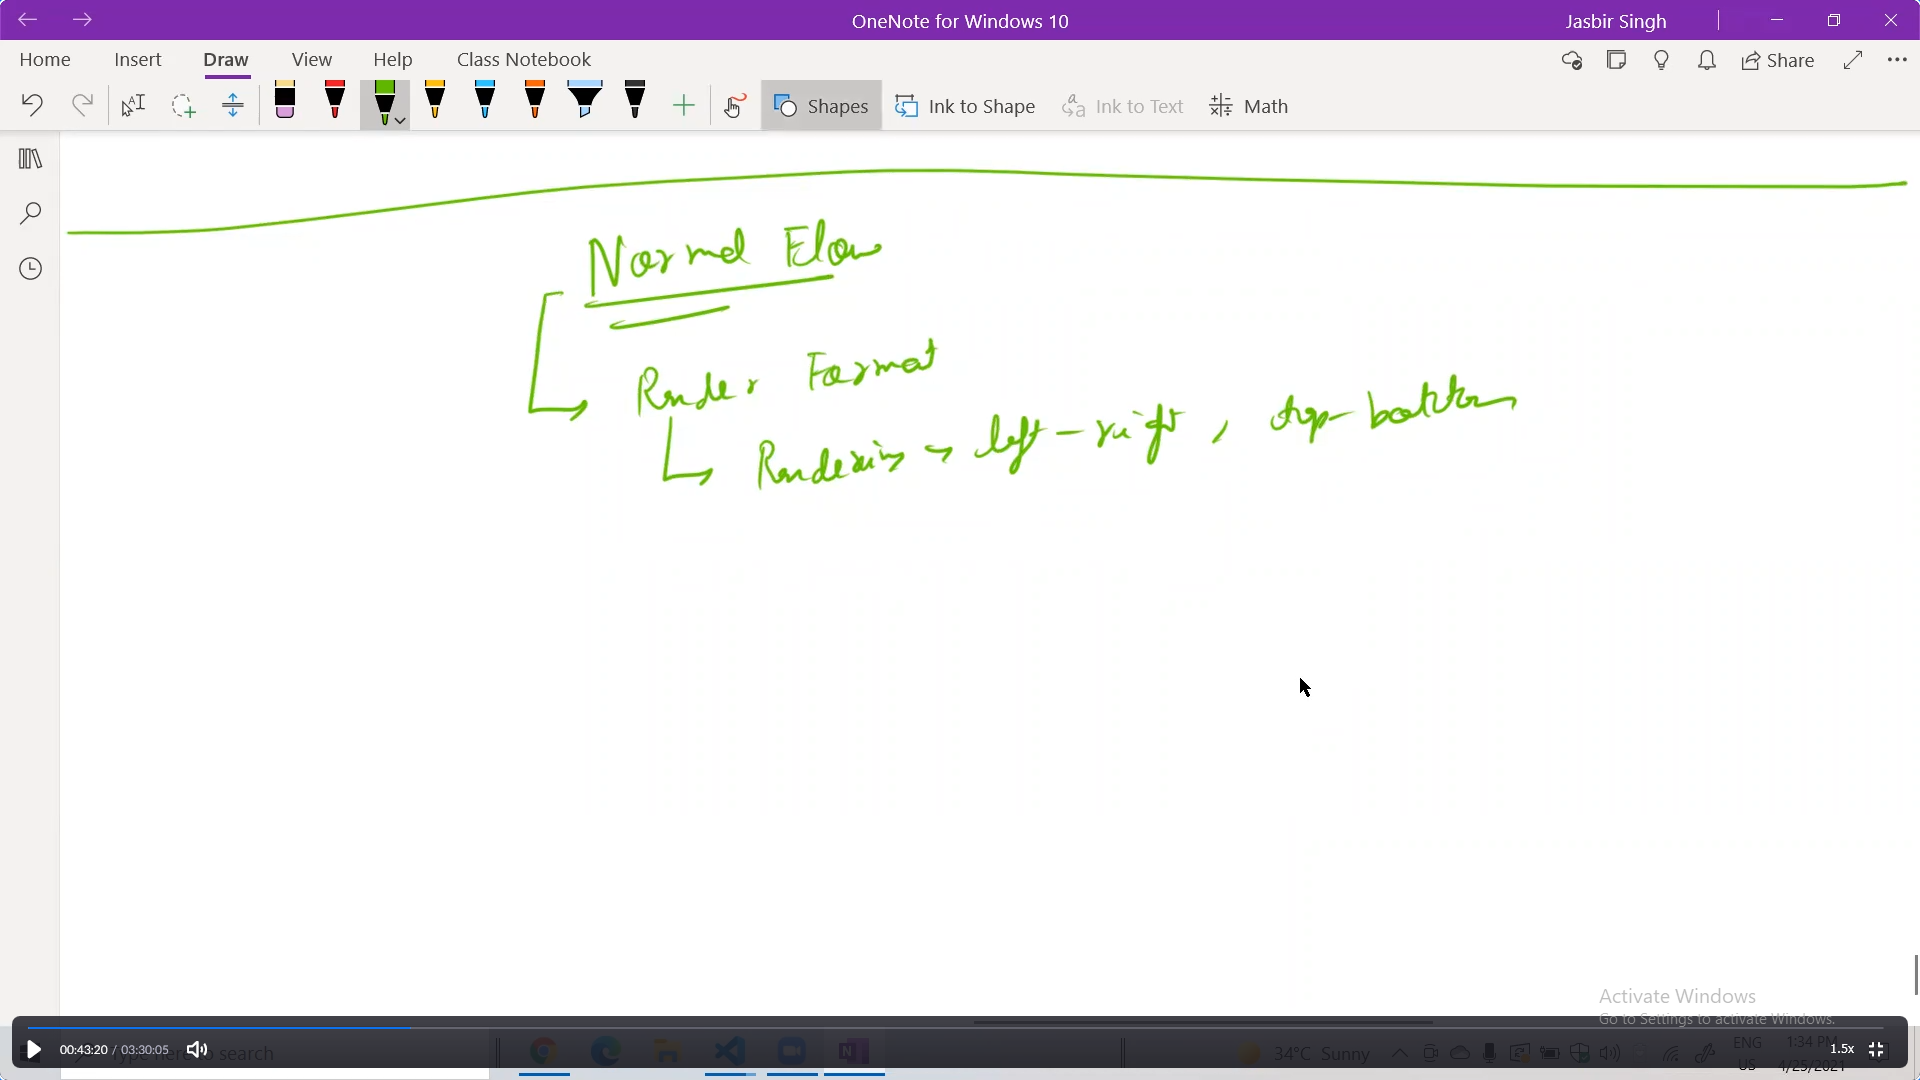 OneNote for Windows 10
Jasbir Singh
Home Insert Draw View Help Class Notebook
Share
Shapes Ink to Shape Ink to Text Math
Normal Flow
Render Format
Rendering → left - right , top - bottom
Activate Windows
Go to Settings to activate Windows.
00:43:20 / 03:30:05
Type here to search
34°C Sunny
ENG
US
1:34 PM
1/25/2021
1.5x